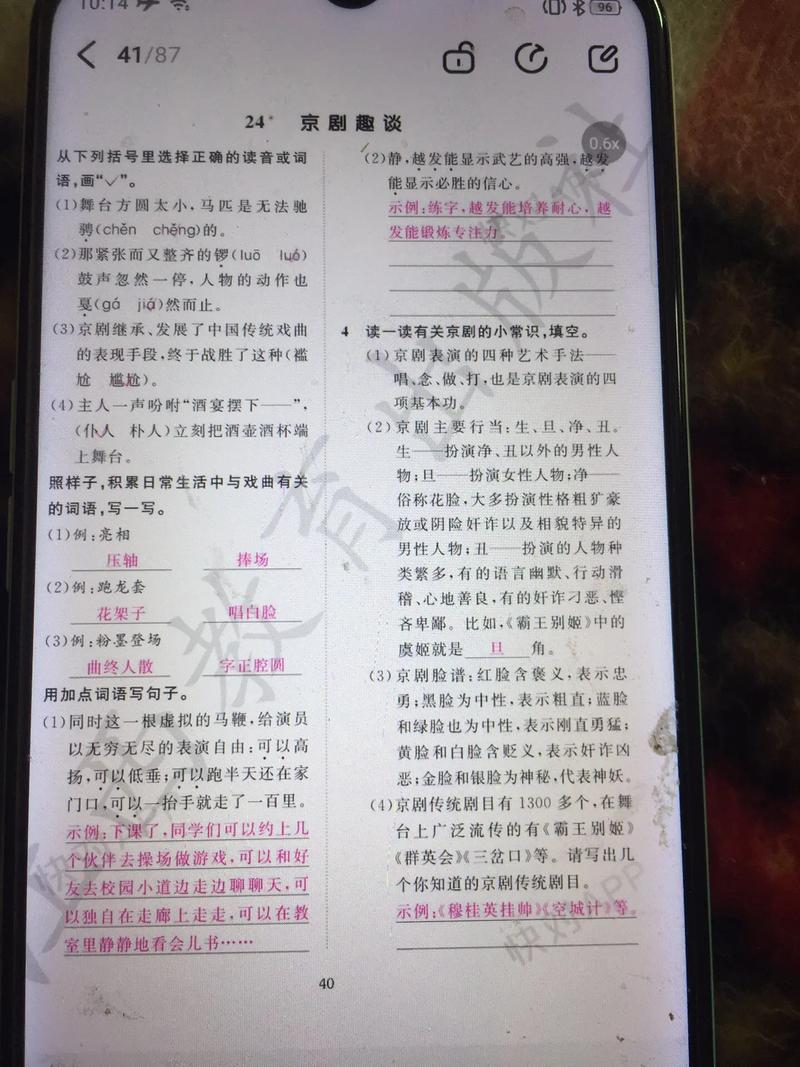 10:14
96
41/87
0.6x
24* 京剧趣谈
从下列括号里选择正确的读音或词
语,画“✓”。
(1)舞台方圆太小,马匹是无法驰
骋(chěn chěng)的。
(2)那紧张而又整齐的锣(luō luó)
鼓声忽然一停,人物的动作也
戛(gá jiá)然而止。
(3)京剧继承、发展了中国传统戏曲
的表现手段,终于战胜了这种(褴
尬 尴尬)。
(4)主人一声吩咐“酒宴摆下——”,
(仆人 朴人)立刻把酒壶酒杯端
上舞台。
照样子,积累日常生活中与戏曲有关
的词语,写一写。
(1)例:亮相
压轴 捧场
(2)例:跑龙套
花架子 唱白脸
(3)例:粉墨登场
曲终人散 字正腔圆
用加点词语写句子。
(1)同时这一根虚拟的马鞭,给演员
以无穷无尽的表演自由:可以高
扬,可以低垂;可以跑半天还在家
门口,可以一抬手就走了一百里。
示例:下课了,同学们可以约上几
个伙伴去操场做游戏,可以和好
友去校园小道边走边聊聊天,可
以独自在走廊上走走,可以在教
室里静静地看会儿书……
(2)静,越发能显示武艺的高强,越发
能显示必胜的信心。
示例:练字,越发能培养耐心,越
发能锻炼专注力。
4 读一读有关京剧的小常识,填空。
(1)京剧表演的四种艺术手法——
唱、念、做、打,也是京剧表演的四
项基本功。
(2)京剧主要行当:生、旦、净、丑。
生——扮演净、丑以外的男性人
物;旦——扮演女性人物;净——
俗称花脸,大多扮演性格粗犷豪
放或阴险奸诈以及相貌特异的
男性人物;丑——扮演的人物种
类繁多,有的语言幽默、行动滑
稽、心地善良,有的奸诈刁恶、悭
吝卑鄙。比如,《霸王别姬》中的
虞姬就是 旦 角。
(3)京剧脸谱:红脸含褒义,表示忠
勇;黑脸为中性,表示粗直;蓝脸
和绿脸也为中性,表示刚直勇猛;
黄脸和白脸含贬义,表示奸诈凶
恶;金脸和银脸为神秘,代表神妖。
(4)京剧传统剧目有1300多个,在舞
台上广泛流传的有《霸王别姬》
《群英会》《三岔口》等。请写出几
个你知道的京剧传统剧目。
示例:《穆桂英挂帅》《空城计》等。
40